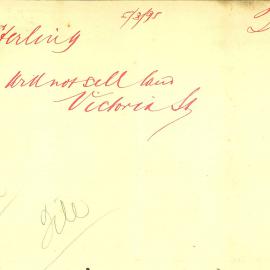 5/3/95
Sterling
Will not sell land
Victoria St
File